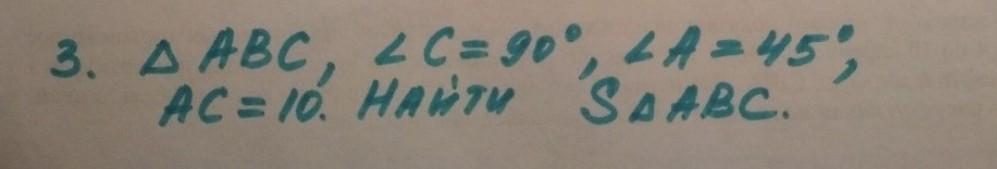 3. △ ABC, ∠C = 90°, ∠A = 45°,
AC = 10. Найти S△ABC.